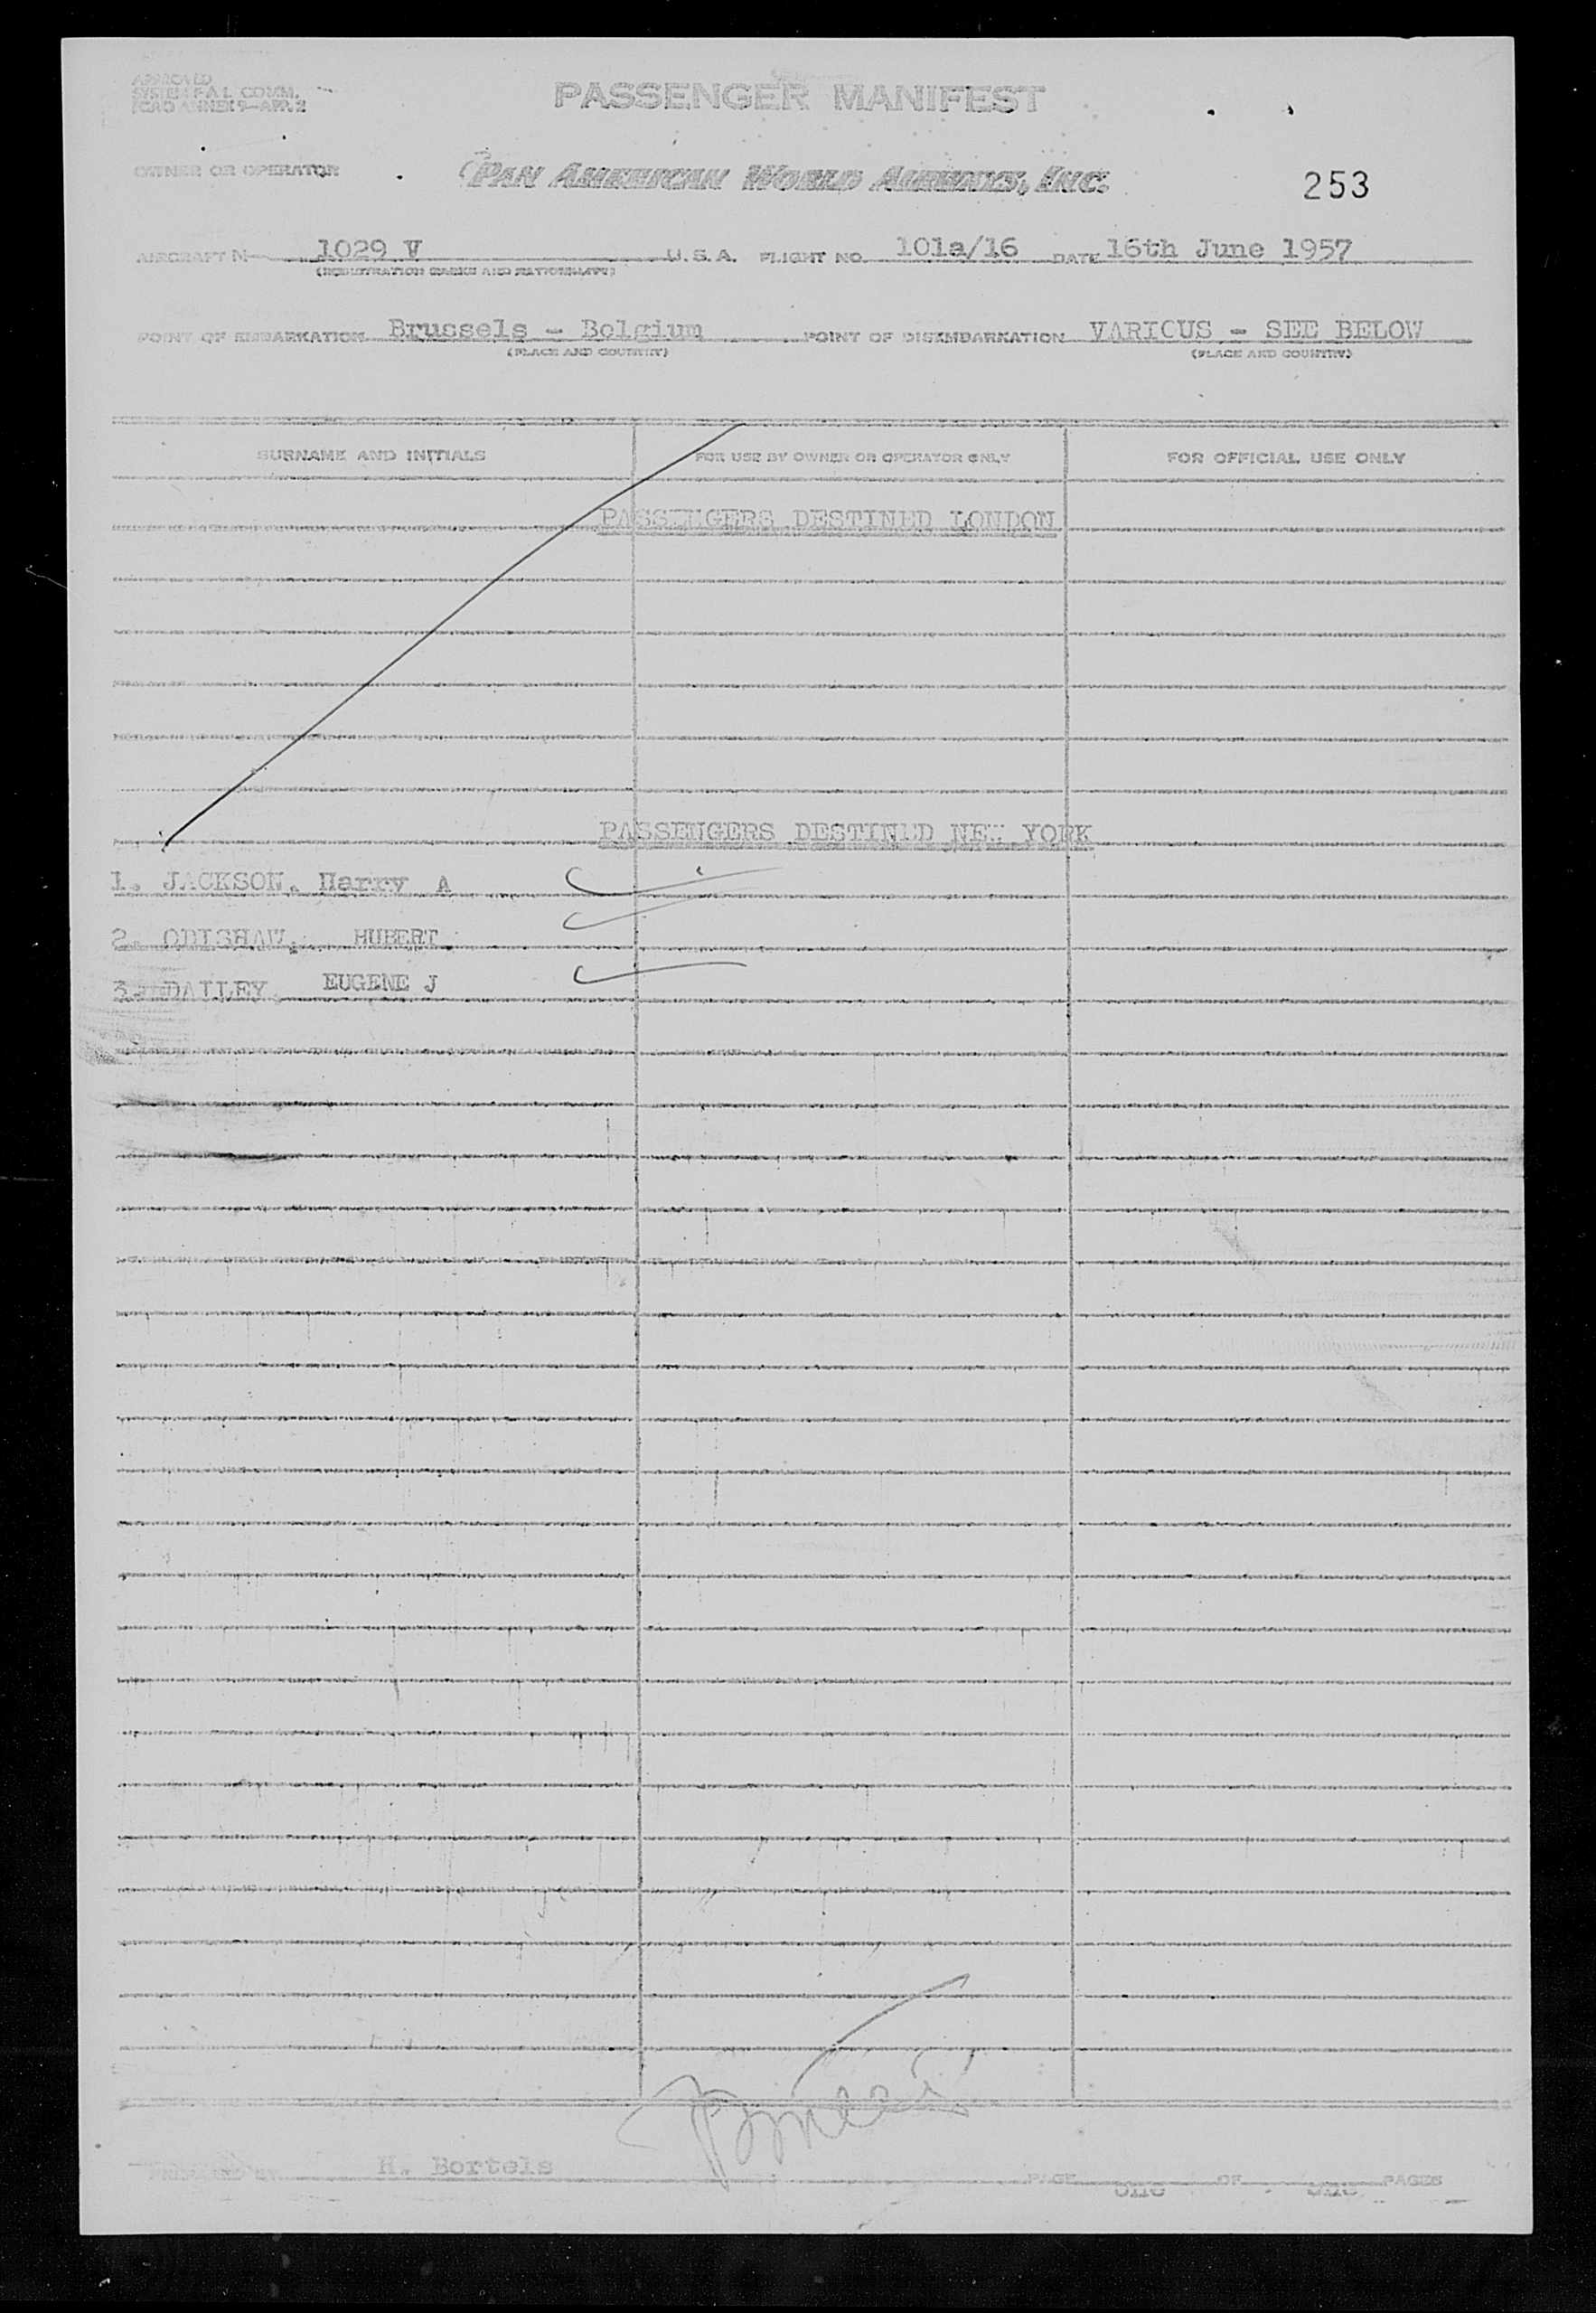 APPROVED
SYSTEM F.A.L. COMM.
ICAO ANNEX 9-APP. 2
PASSENGER MANIFEST
OWNER OR OPERATOR PAN AMERICAN WORLD AIRWAYS, INC. 253
AIRCRAFT N 1029 V U.S.A. FLIGHT NO. 101a/16 DATE 16th June 1957
(REGISTRATION MARKS AND NATIONALITY)
POINT OF EMBARKATION Brussels - Belgium POINT OF DISEMBARKATION VARIOUS - SEE BELOW
(PLACE AND COUNTRY) (PLACE AND COUNTRY)
SURNAME AND INITIALS FOR USE BY OWNER OR OPERATOR ONLY FOR OFFICIAL USE ONLY
PASSENGERS DESTINED LONDON
PASSENGERS DESTINED NEW YORK
1. JACKSON. Harry A
2. ODISHAW. HUBERT
3. DAILEY EUGENE J
PREPARED BY H. Bortels PAGE one OF one PAGES